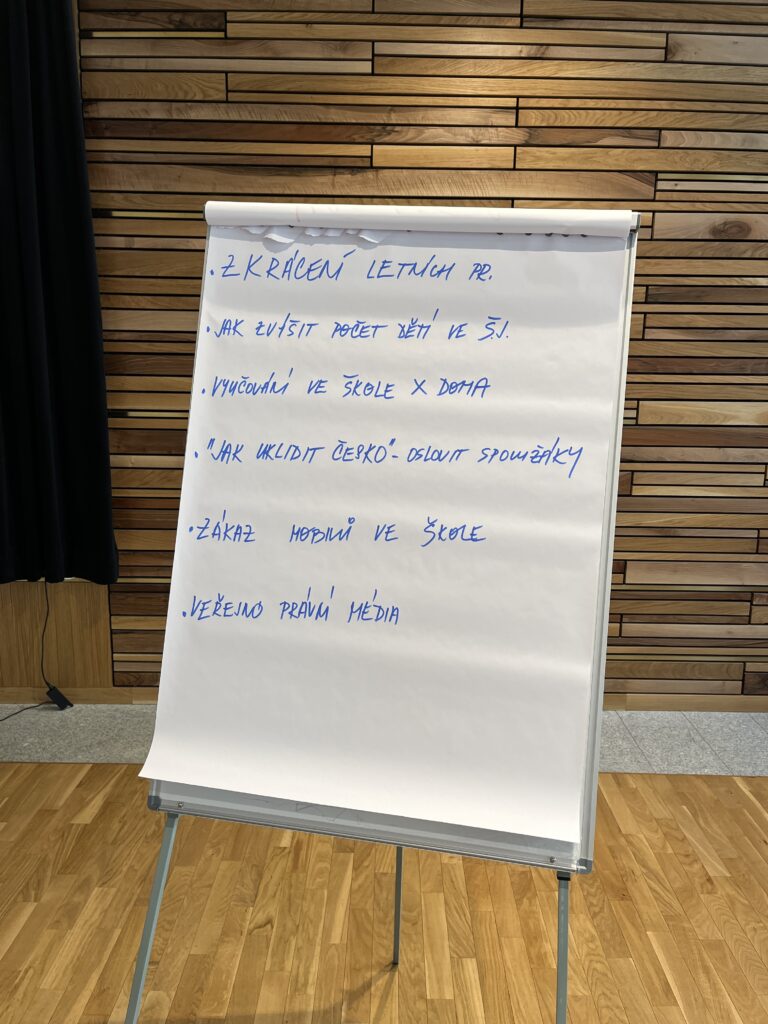 • ZKRÁCENÍ LETNÍCH PR.
• JAK ZVÝŠIT POČET DĚTÍ VE Š.J.
• VYUČOVÁNÍ VE ŠKOLE X DOMA
• "JAK UKLIDIT ČESKO" - OSLOVIT SPOLUŽÁKY
• ZÁKAZ MOBILŮ VE ŠKOLE
• VEŘEJNO PRÁVNÍ MÉDIA